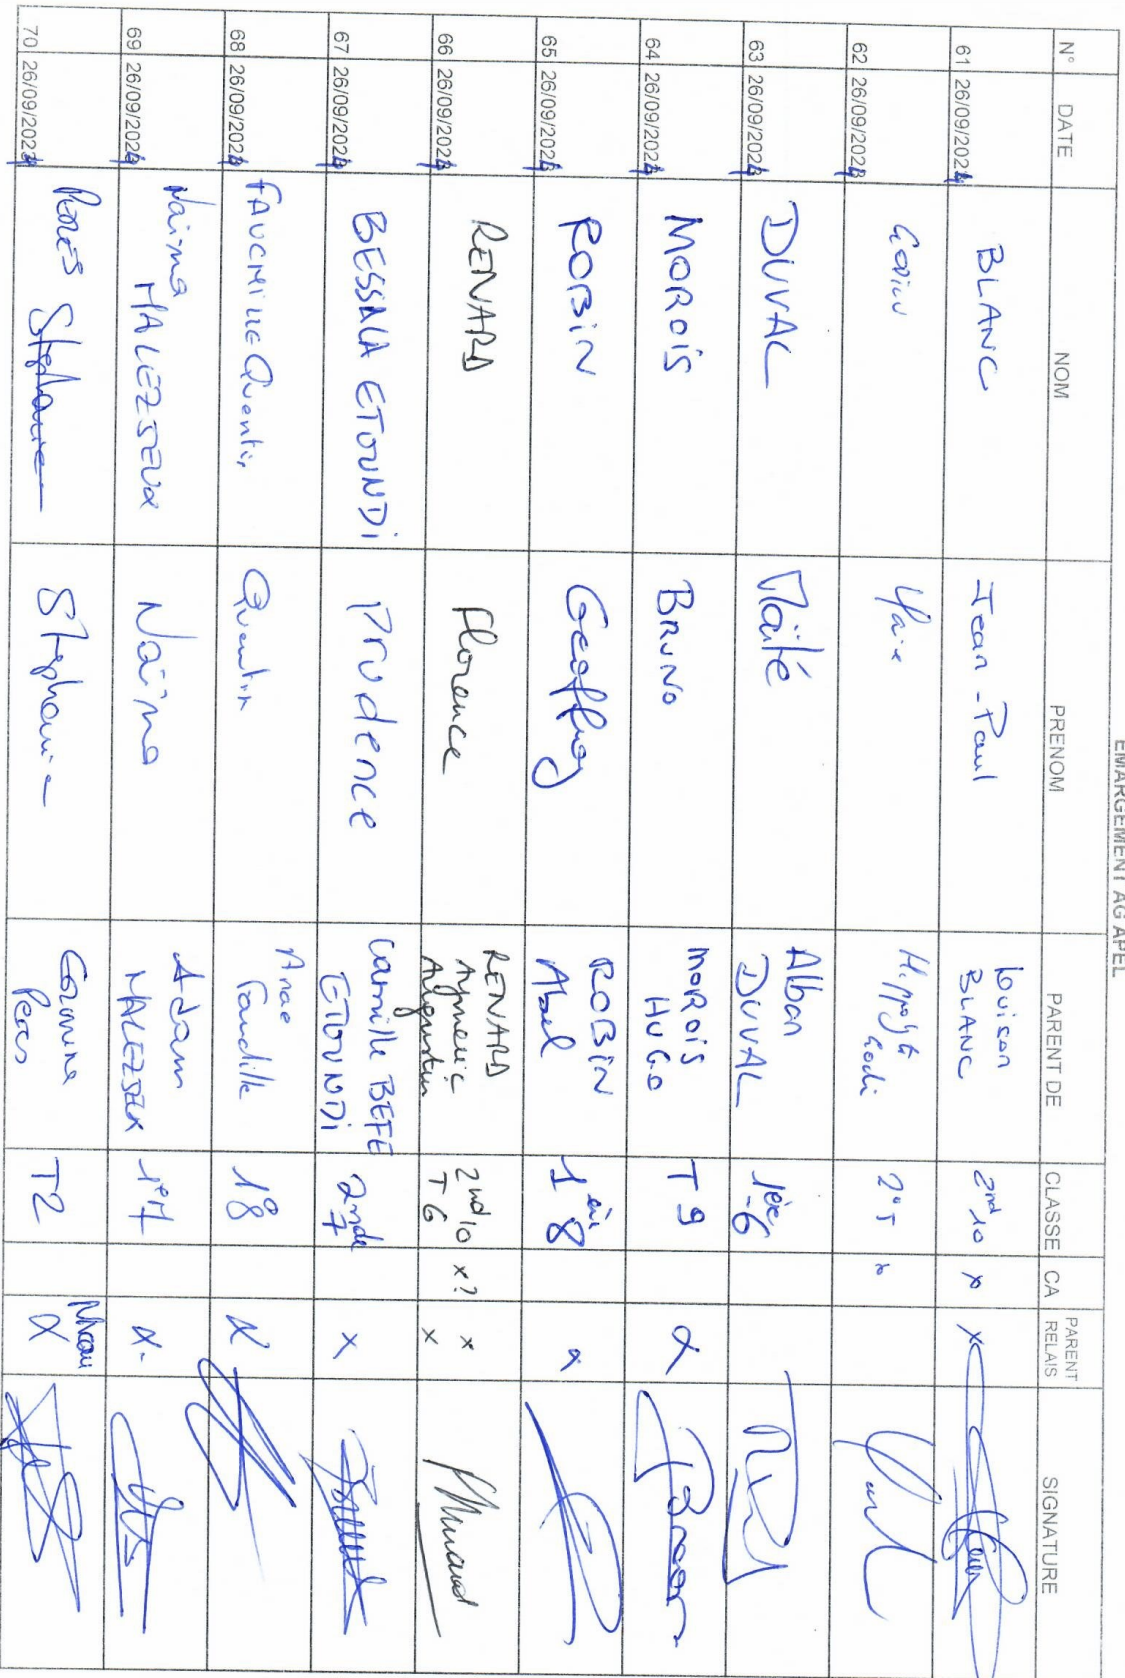 EMARGEMENT AG APEL
N° DATE NOM PRENOM PARENT DE CLASSE CA PARENT RELAIS SIGNATURE
61 26/09/2024 BLANC Jean-Paul Louison BLANC 2nd 10 x x
62 26/09/2024 2° 5 x
63 26/09/2024 DUVAL Maïté Alban DUVAL 1ère -6
64 26/09/2024 MOROIS BRUNO MOROIS HUGO T9 x
65 26/09/2024 ROBIN Geoffroy ROBIN Abel 1ère 8 x
66 26/09/2024 RENARD Florence RENARD Aymeric Augustin 2nd 10 T6 x? x x
67 26/09/2024 BESSALA ETOUNDI Prudence Camille BEFE ETOUNDI 2nde 7 x
68 26/09/2024 Quentin Quentin Anae 1° 8 x
69 26/09/2024 Naima MALEZSEUX Naïma Adam 1° 7 x
70 26/09/2024 Stephanie Stephanie T2 x